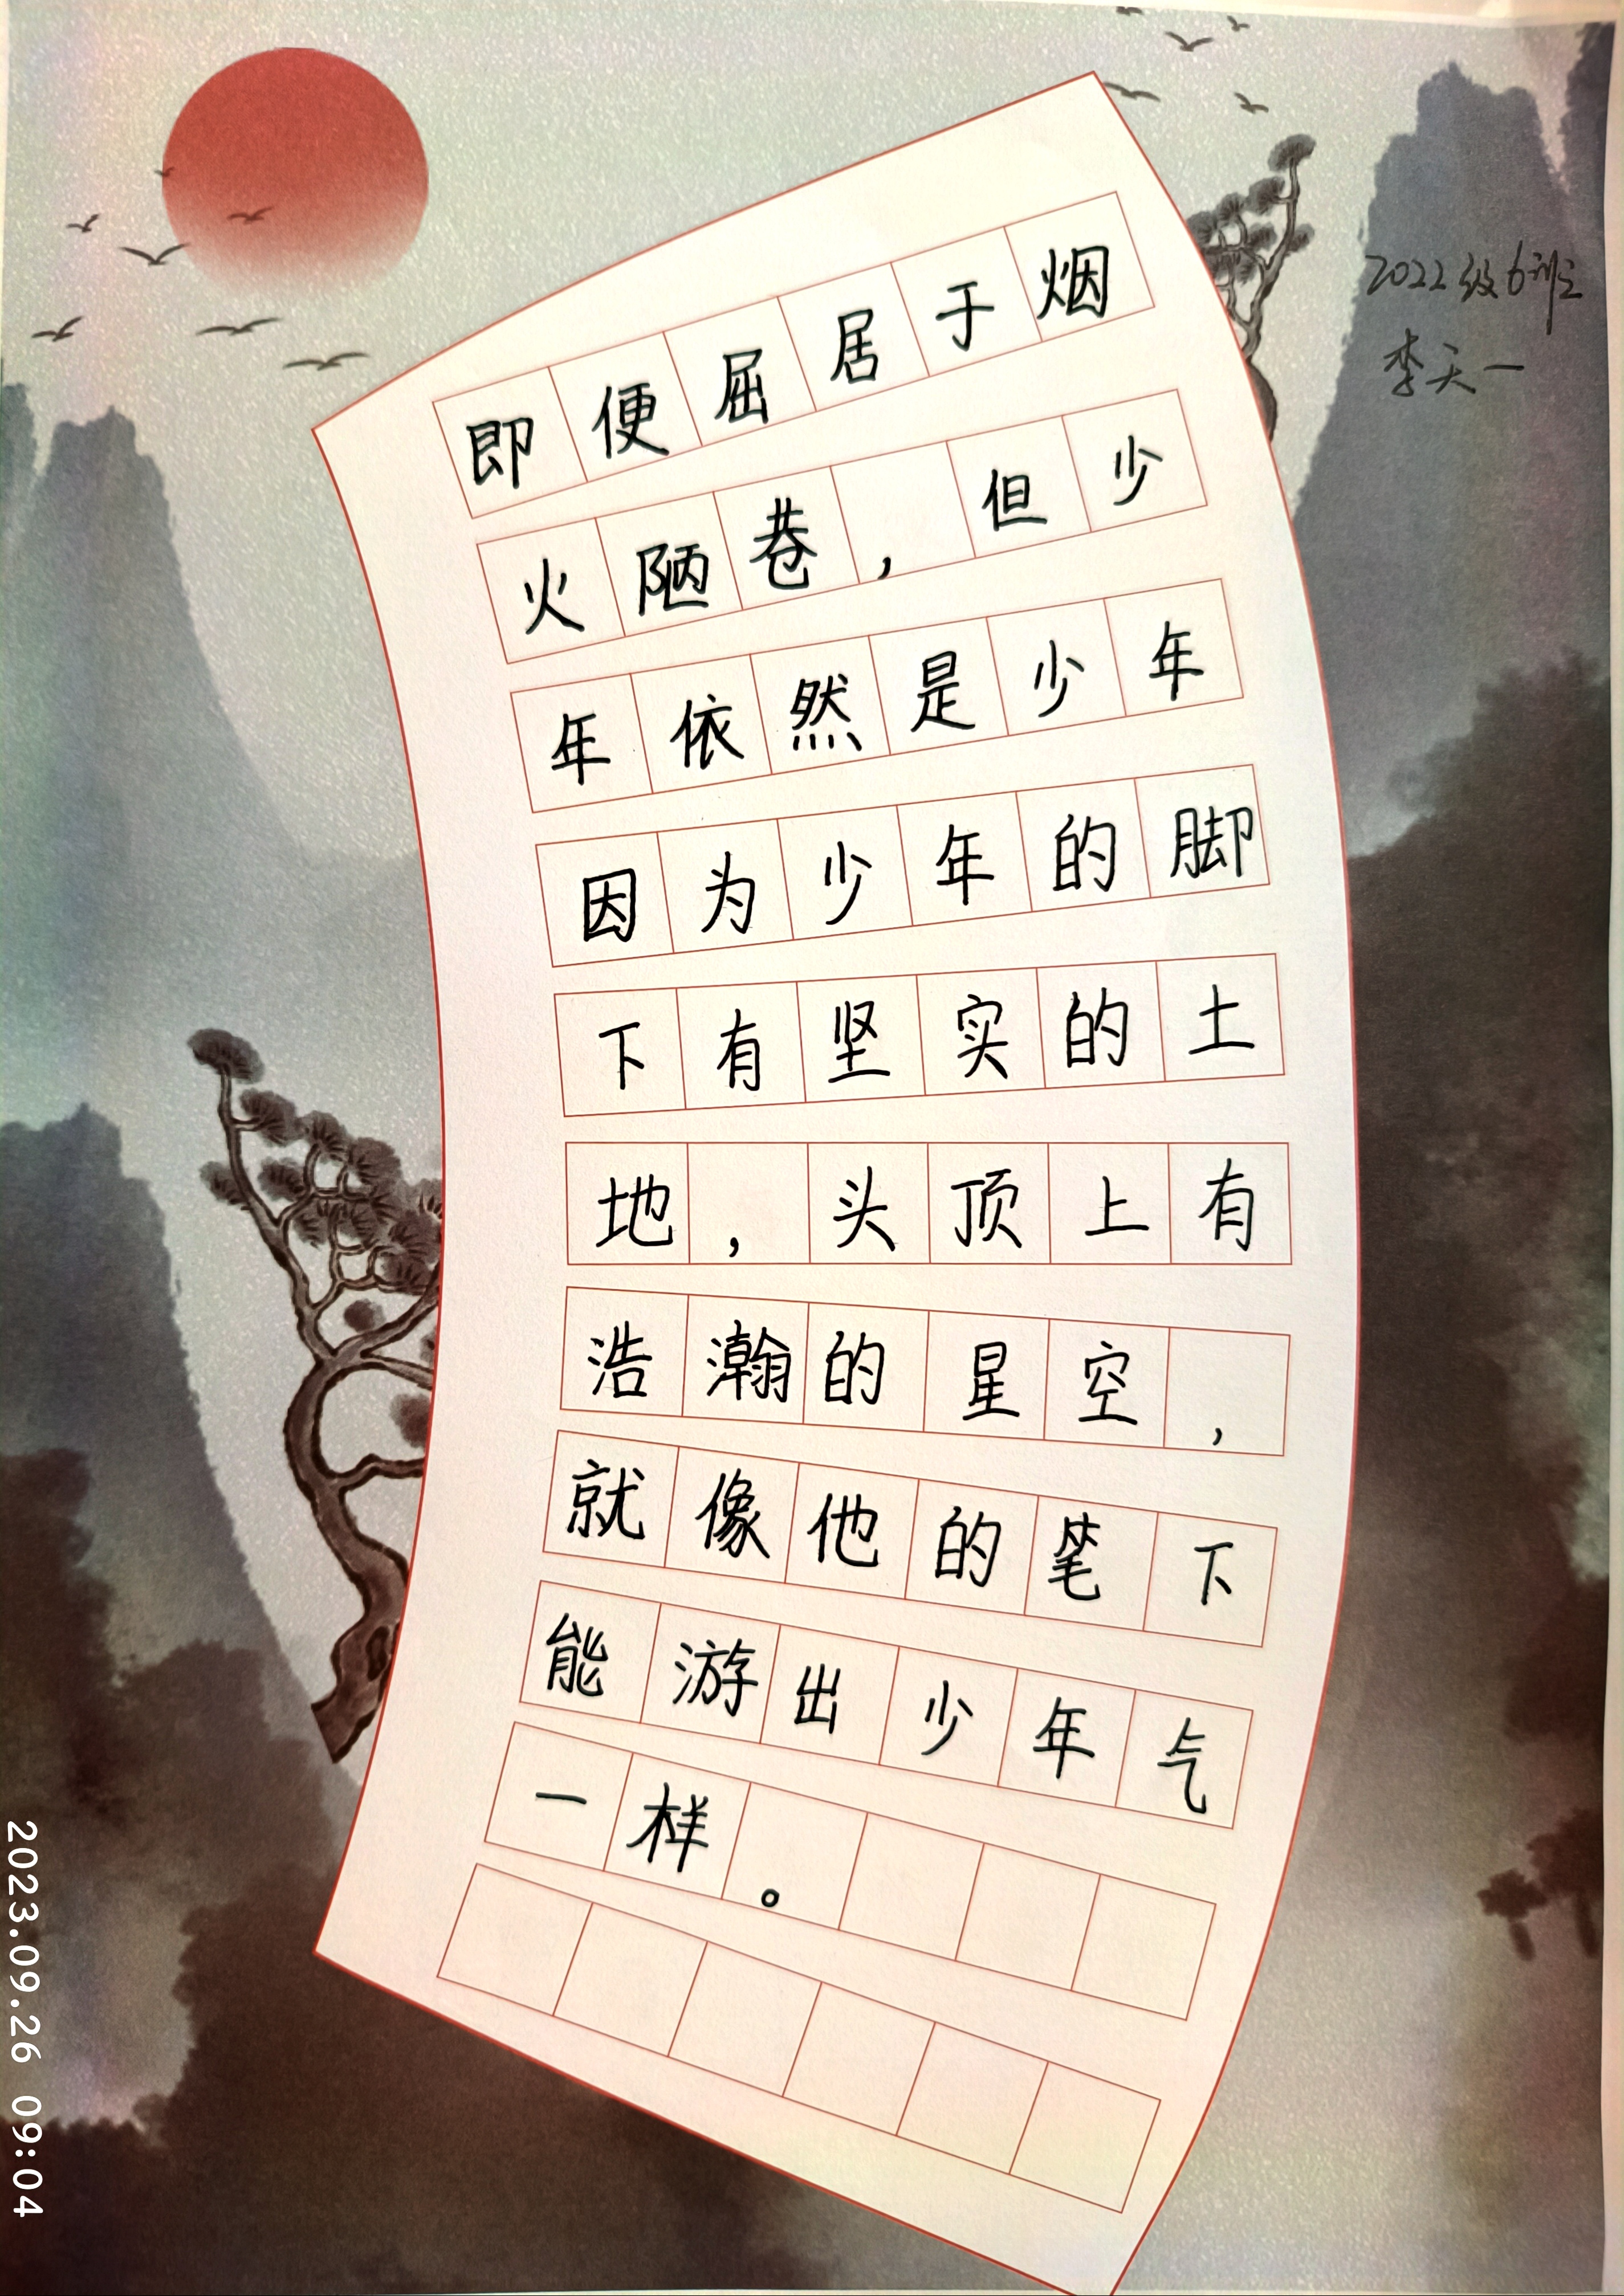 即便屈居于烟
火陋巷，但少
年依然是少年
因为少年的脚
下有坚实的土
地，头顶上有
浩瀚的星空，
就像他的笔下
能游出少年气
一样。
2022级6班
李天一
2023.09.26 09:04